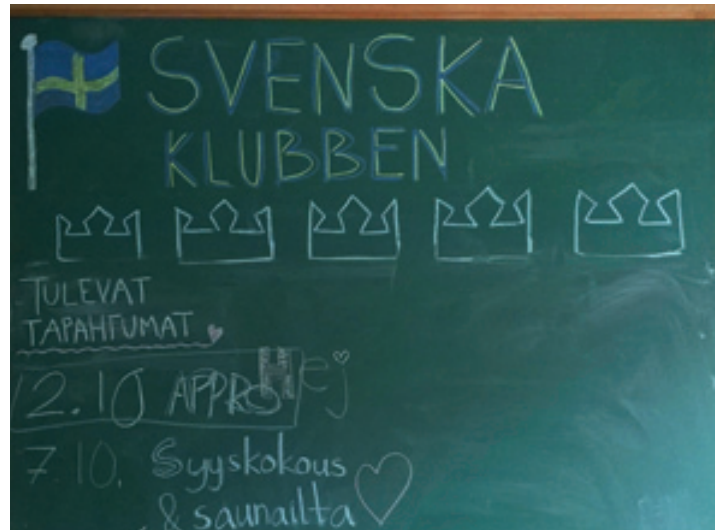 SVENSKA
KLUBBEN
TULEVAT
TAPAHTUMAT
12.10 APPRO Hej
7.10. Syyskokous
& saunailta